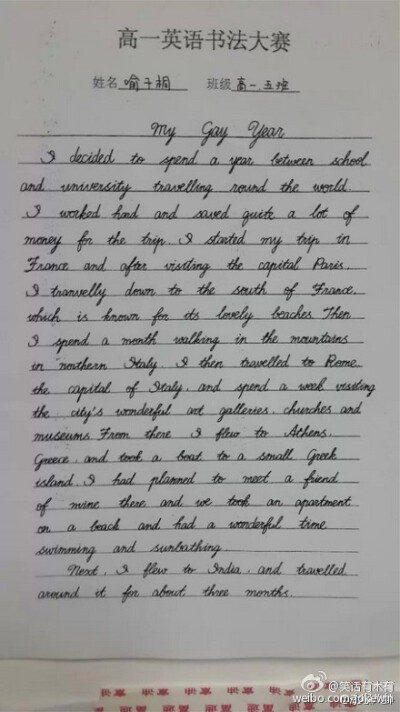 高一英语书法大赛
姓名 喻子桐 班级 高一.五班
My Gay Year
I decided to spend a year between school
and university travelling round the world.
I worked hard and saved quite a lot of
money for the trip. I started my trip in
France and after visiting the capital Paris.
I tranvelly down to the south of France.
which is known for its lovely beaches Then
I spend a month walking in the mountains
in northern Italy. I then travelled to Rome
the capital of Italy. and spend a week visiting
the city's wonderful art galleries. churches and
museums From there I flew to Athens.
Greece. and took a boat to a small Greek
island. I had planned to meet a friend
of mine there. and we took an apartment
on a beack and had a wonderful time
swimming and sunbathing.
Next. I flew to India. and travelled
around it for about three months.
@笑话有木有
weibo.com/